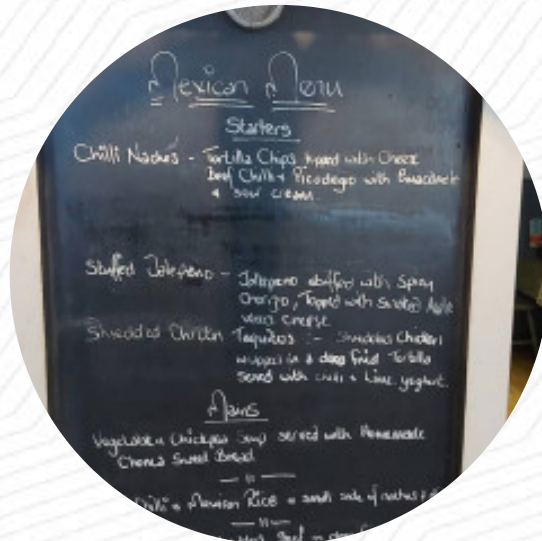 Mexican Menu
Starters
Chilli Nachos - Tortilla Chips topped with Cheese
Beef Chilli + Picodegio with
+ sour cream
Stuffed Jalepeno - Jalepeno stuffed with Spicy
Chorizo, Topped with Smoked
cheese
Shredded Chicken Taquitos :- Shredded Chicken
wrapped in a deep fried Tortilla
served with chilli + Lime yoghurt.
Mains
Vegetable + Chickpea Soup served with Homemade
Sweet Bread
— " —
Chilli + Mexican Rice + small side of nachos +
— " —
Beef